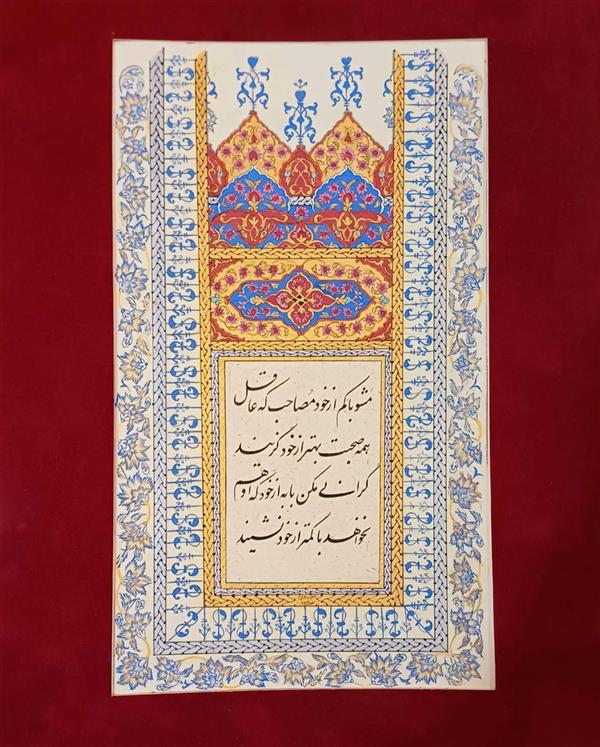 مشو با کم از خود مصاحب که عاقل
همه صحبت بهتر از خود گزیند
گرانی مکن با به از خود که او هم
نخواهد با کمتر از خود نشیند